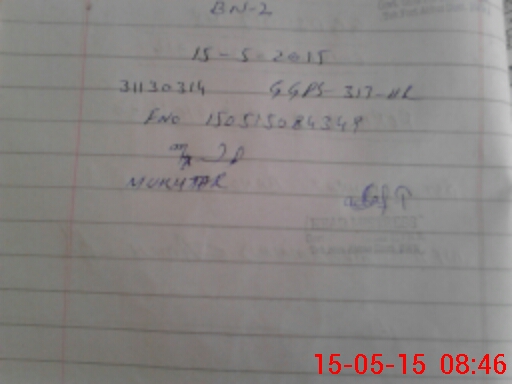 BN-2
15-5-2015
31130314 GGPS-317-HR
ENO 150515084349
MUKHTAR
15-05-15 08:46